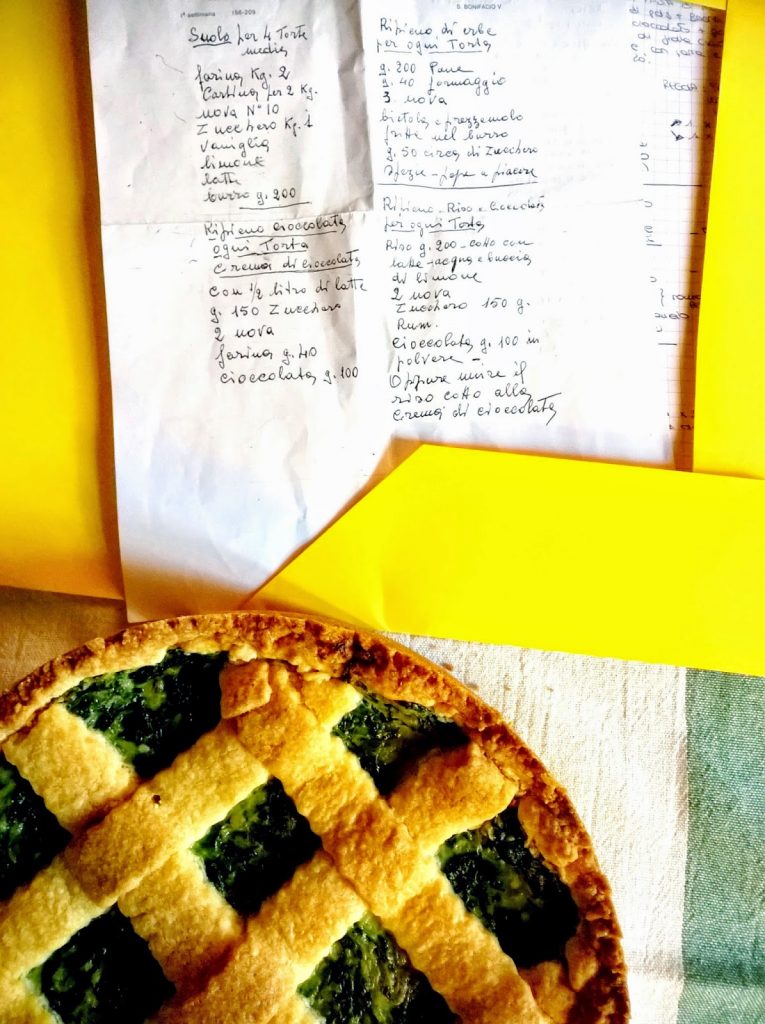 1ª settimana 156-209
Suolo per 4 Torte
medie
farina Kg. 2
Cartina per 2 Kg.
uova N° 10
Zucchero Kg. 1
vaniglia
limone
latte
burro g. 200
Ripieno cioccolata
ogni Torta
Crema di cioccolata
con ½ litro di latte
g. 150 Zucchero
2 uova
farina g. 40
cioccolata g. 100
S. BONIFACIO V.
Ripieno di erbe
per ogni Torta
g. 200 Pane
g. 40 formaggio
3 uova
bietola e prezzemolo
fritte nel burro
g. 50 circa di Zucchero
Spezie - pepe a piacere
Ripieno - Riso e Cioccolata
per ogni Torta
Riso g. 200 - cotto con
latte - acqua e buccia
di limone
2 uova
Zucchero 150 g.
Rum.
cioccolata g. 100 in
polvere -
Oppure unire il
riso cotto alla
Crema di cioccolata